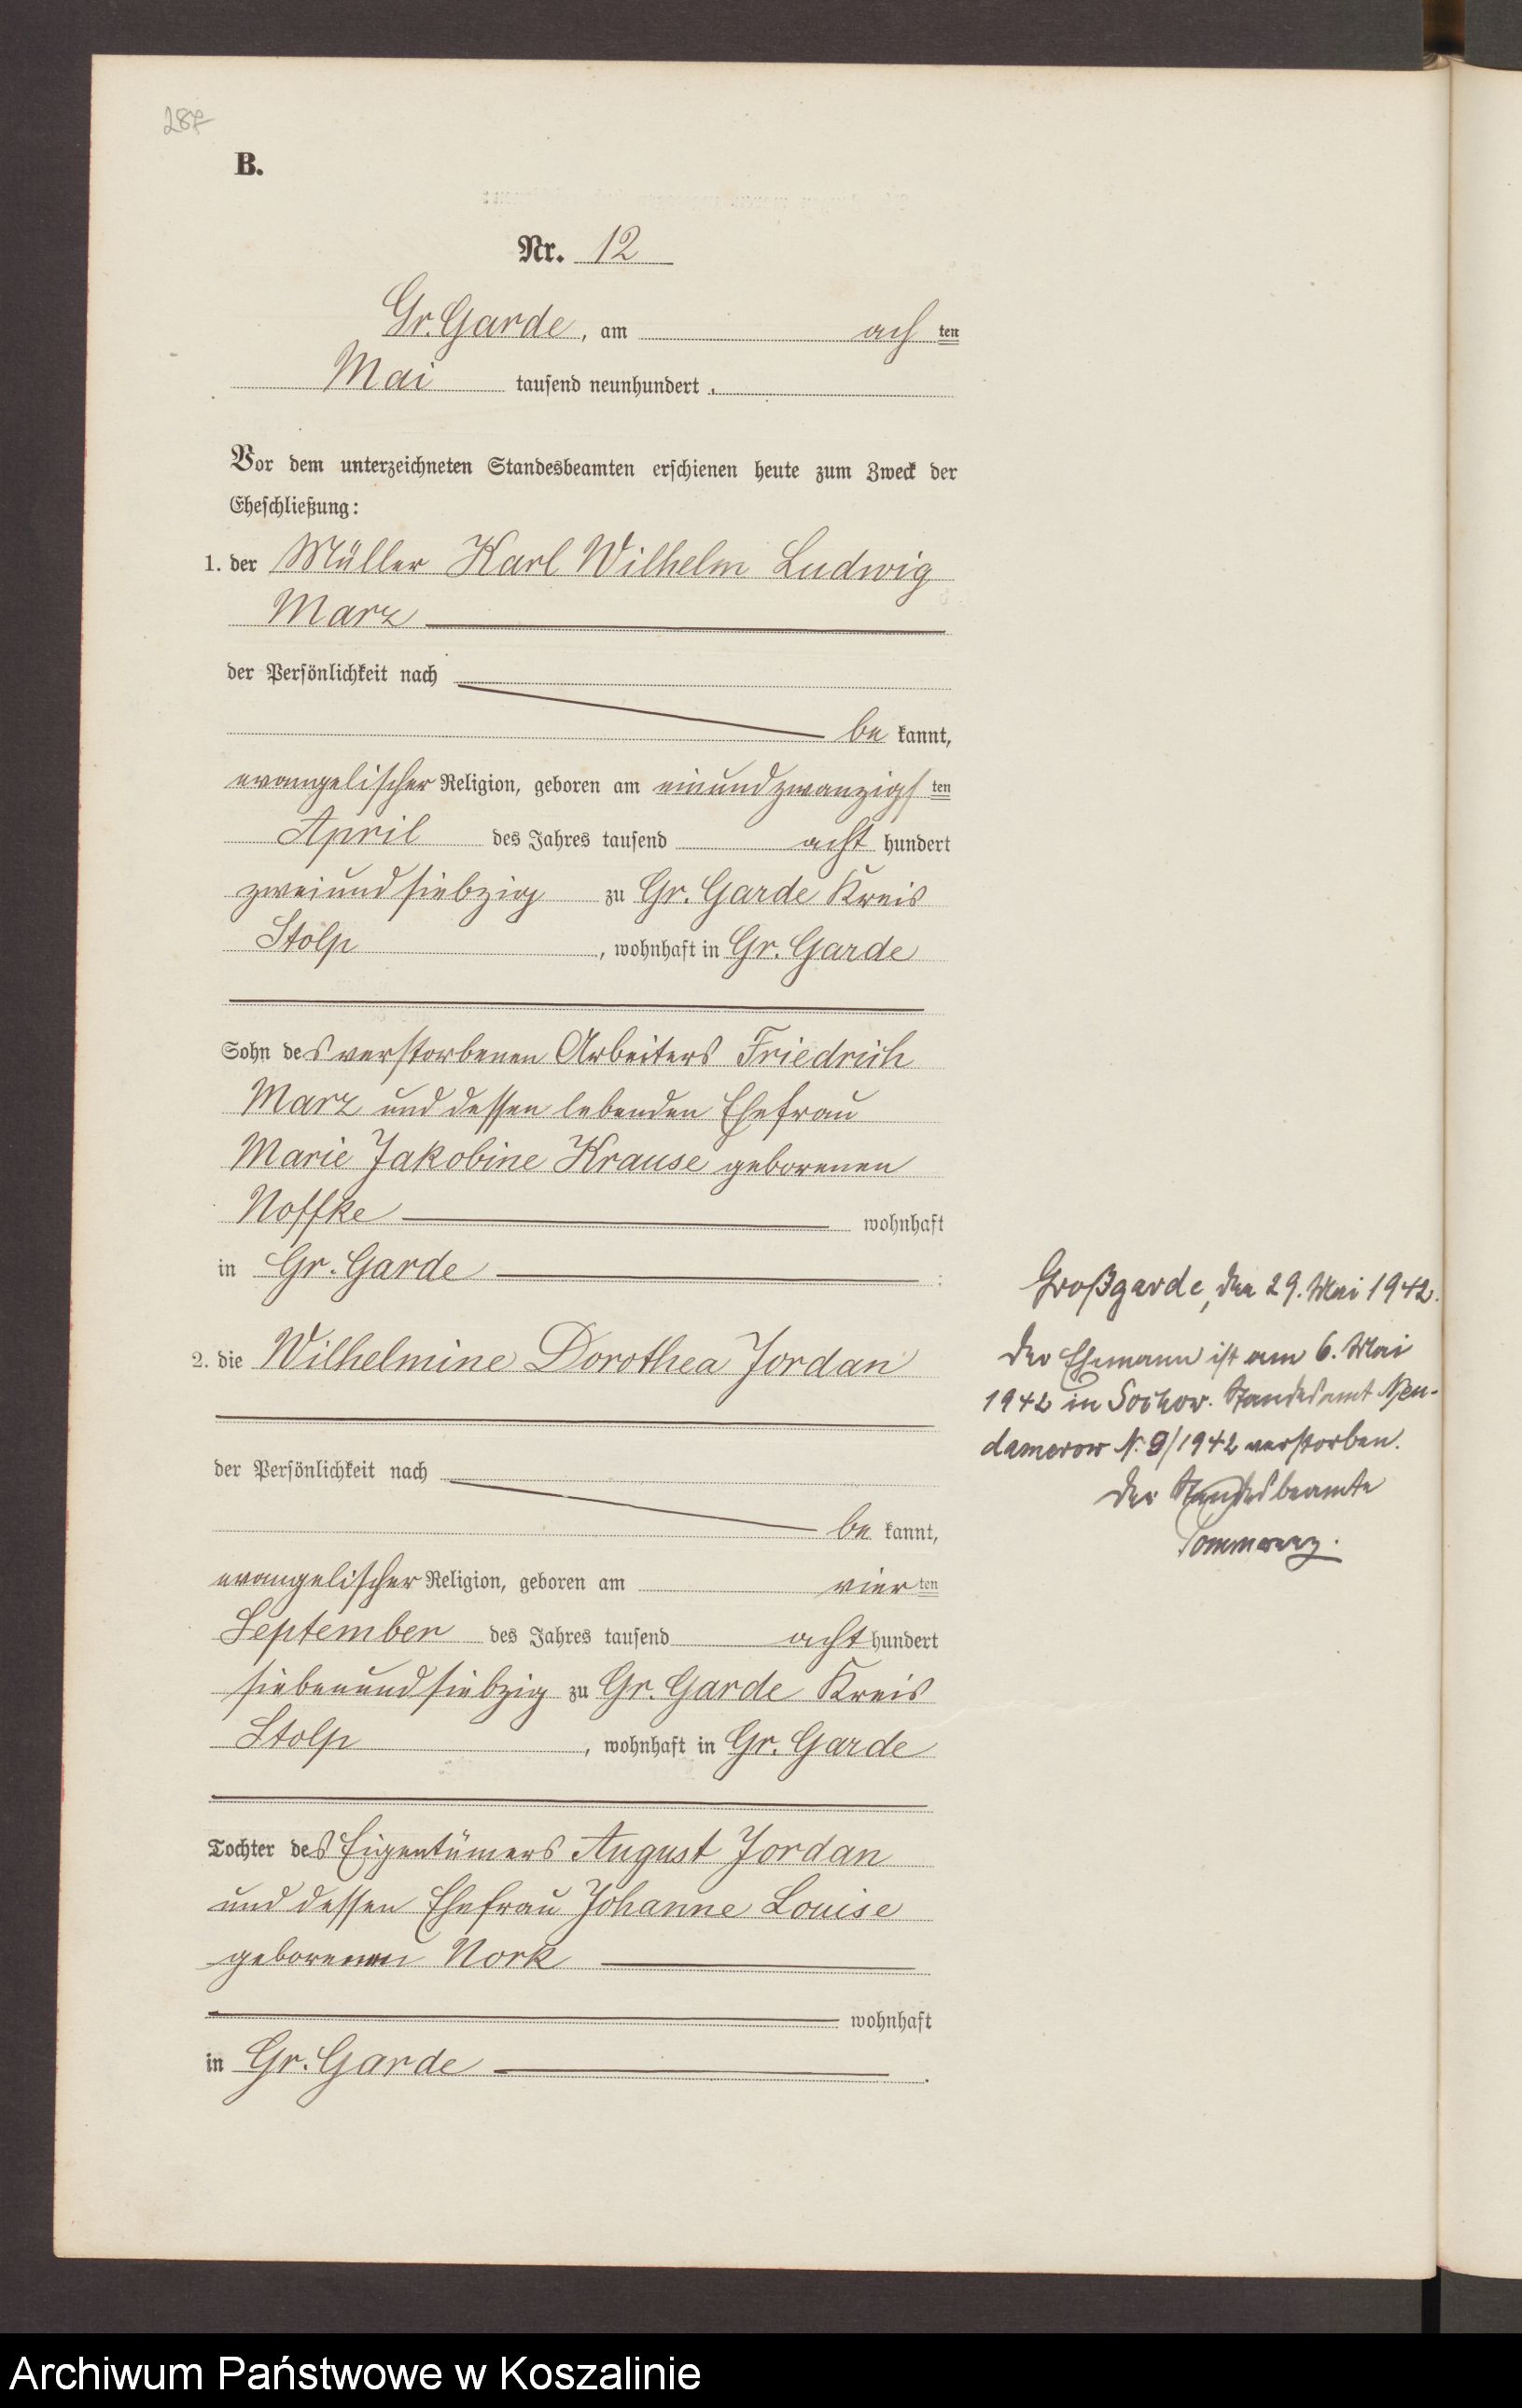 287
B.
Nr. 12
Gr. Garde, am ach ten
Mai tausend neunhundert
Vor dem unterzeichneten Standesbeamten erschienen heute zum Zweck der
Eheschließung:
1. der Müller Karl Wilhelm Ludwig
Marz
der Persönlichkeit nach
be kannt,
evangelischer Religion, geboren am einundzwanzigs ten
April des Jahres tausend acht hundert
zweiundsiebzig zu Gr. Garde Kreis
Stolp, wohnhaft in Gr. Garde
Sohn des verstorbenen Arbeiters Friedrich
Marz und dessen lebenden Ehefrau
Marie Jakobine Krause geborenen
Noffke wohnhaft
in Gr. Garde :
2. die Wilhelmine Dorothea Jordan
der Persönlichkeit nach
be kannt,
evangelischer Religion, geboren am vier ten
September des Jahres tausend acht hundert
siebenundsiebzig zu Gr. Garde Kreis
Stolp, wohnhaft in Gr. Garde
Tochter des Eigentümers August Jordan
und dessen Ehefrau Johanne Louise
geborenen Nork
wohnhaft
in Gr. Garde .
Großgarde, den 29. Mai 1942.
Der Ehemann ist am 6. Mai
1942 in Sochow. Standesamt Neu-
damerow N. 9/1942 verstorben.
Der Standesbeamte
Archiwum Państwowe w Koszalinie